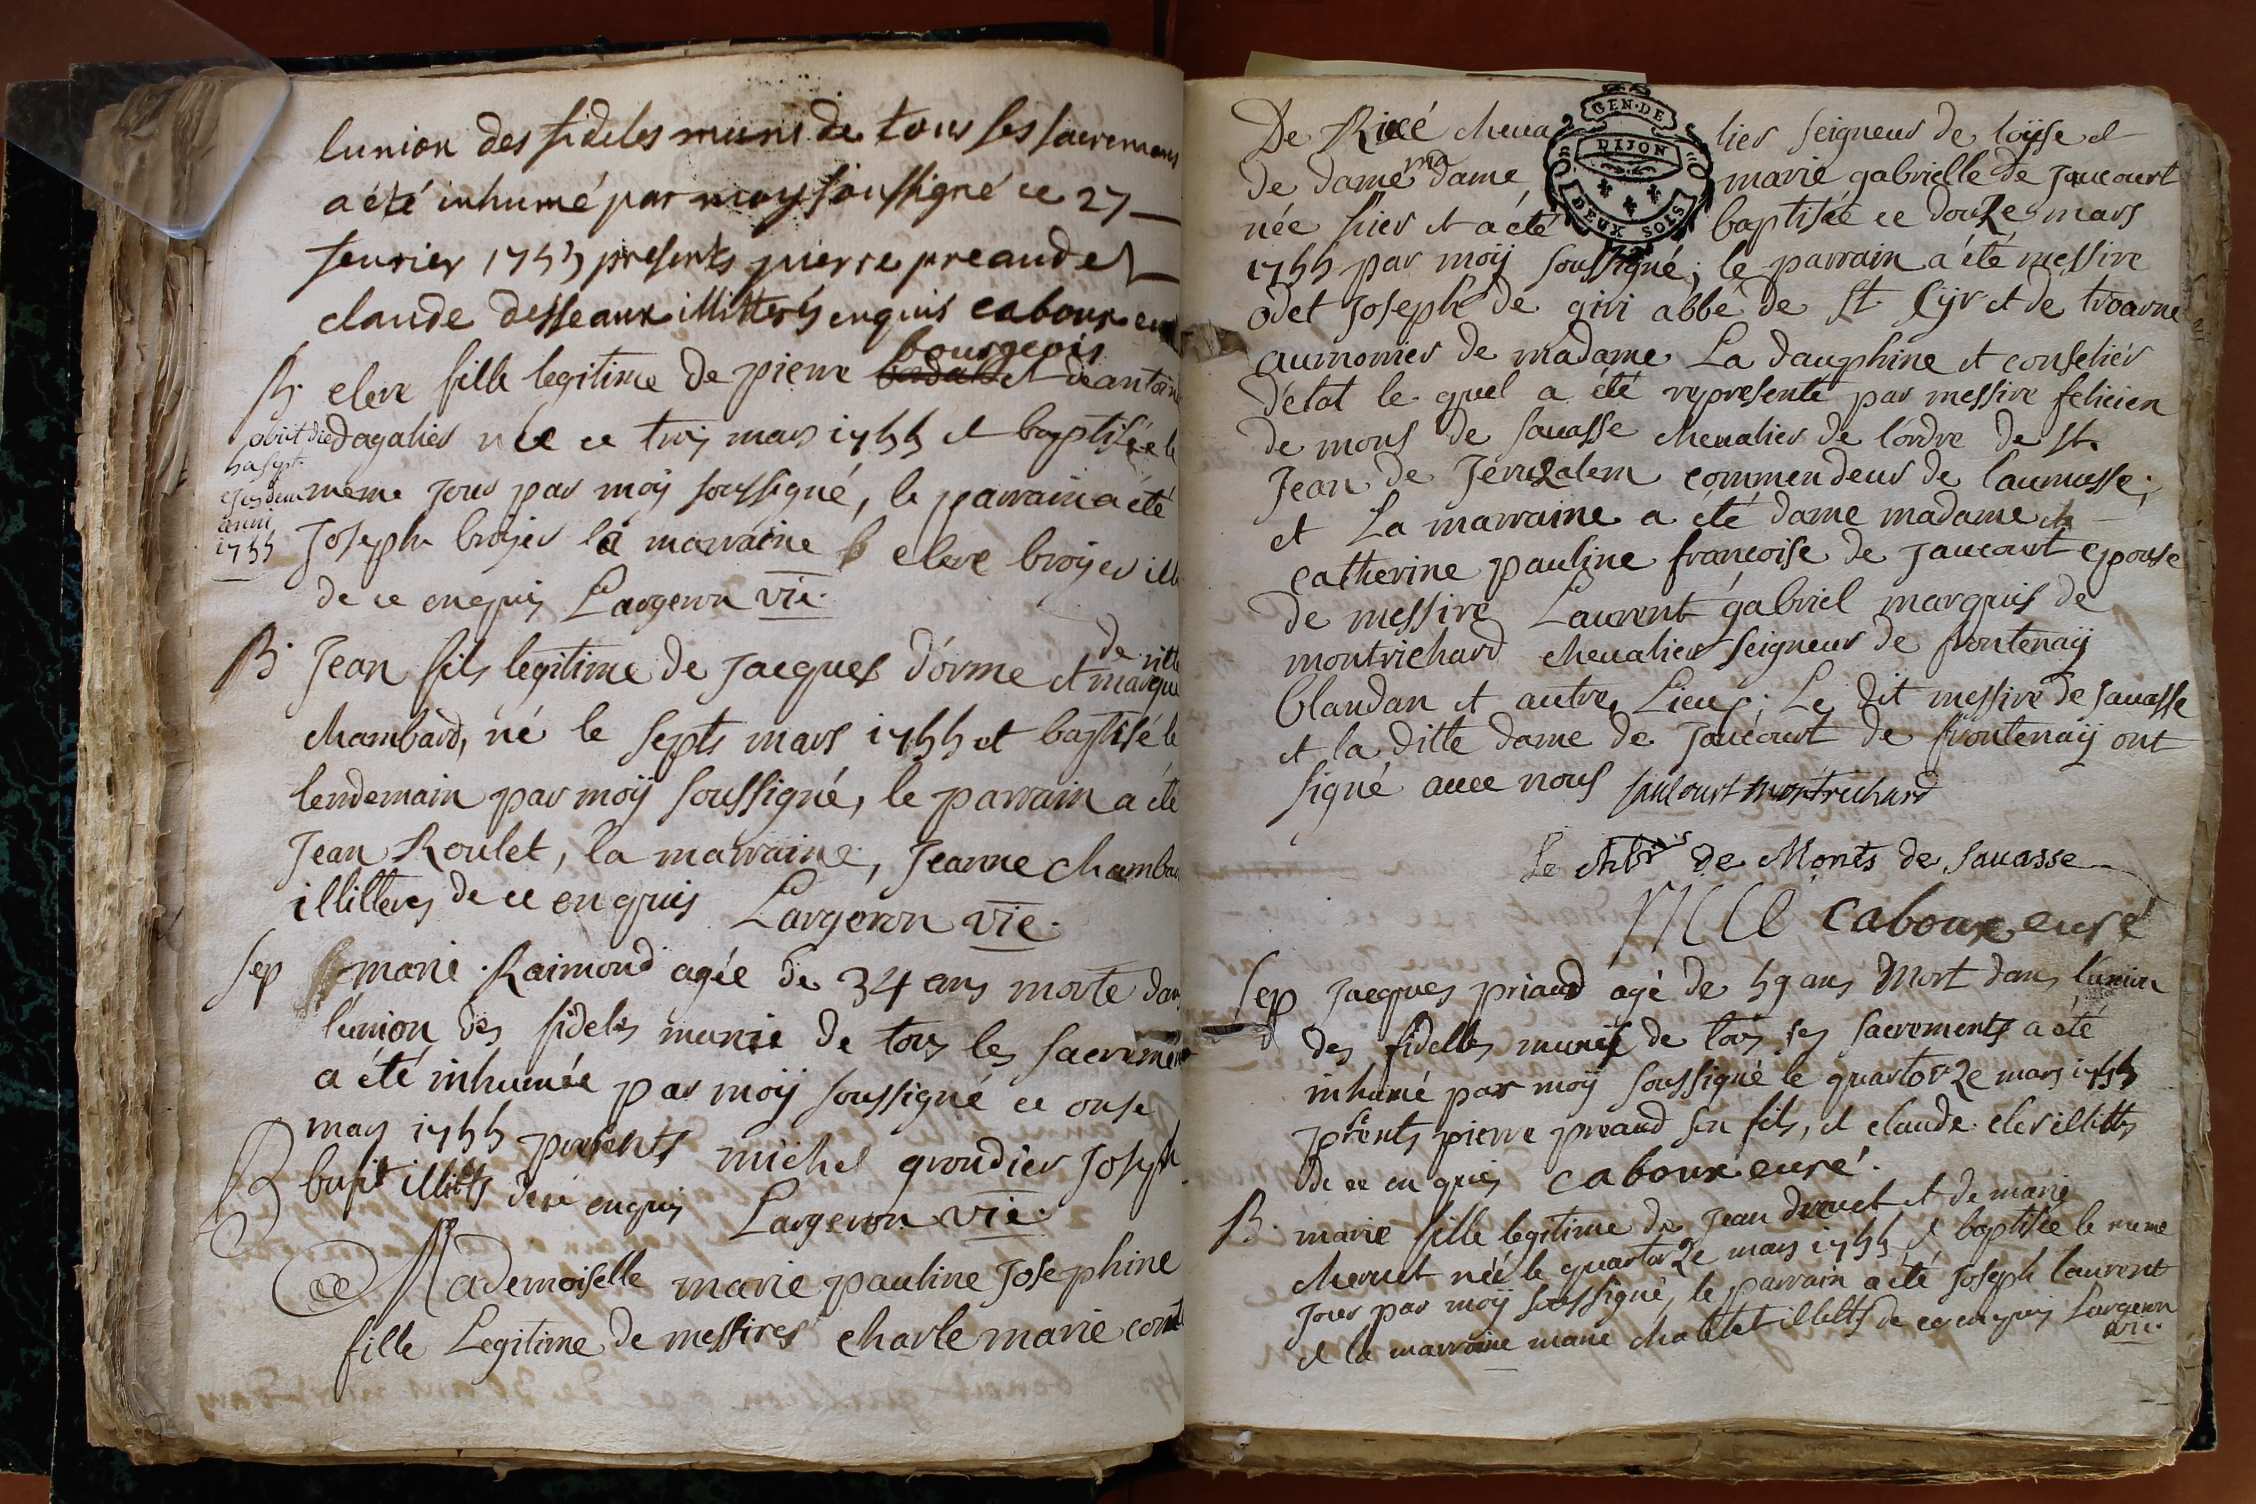 lunion des fideles muni de tous ses sacremens
a été inhumé par moy soussigné ce 27
feurier 1755 presents pierre preaud et
claude desseaux illitterés enquis caboux curé
B. clere fille legitime de pierre bourgeois et de antoine
obiit die
5a sept.
ejusdem
anni
1755
dagalier née ce trois mars 1755 et baptisée le
meme jour par moÿ soussigné, le parrain a été
Joseph broÿer la marraine clere broÿer ill
de ce enquis Largeron vic.
B. Jean fils legitime de Jacques d'orme et de
marque
chambard, né le septs mars 1755 et baptisé le
lendemain par moÿ soussigné, le parrain a été
Jean Roulet, la marraine, Jeanne chambar
illitteres de ce enquis Largeron vic.
Sep marie Raimond agée de 34 ans morte dans
l'union des fideles munie de tous les sacremen
a été inhumée par moÿ soussigné ce onse
mars 1755 presents michel grondier Joseph
B bufit illitts de ce enquis Largeron vic.
Mademoiselle marie pauline Josephine
fille Legitime de messires charle marie comt
GEN. DE
DIJON
DEUX SOLS
De Riccé cheualier seigneur de loÿse et
de dame ma dame marie gabrielle de Jaucourt
née hier et a été baptisée ce douze mars
1755 par moÿ soussigné; le parrain a été messire
odet Joseph de giri abbé de St Cÿr et de troarne
aumonier de madame La dauphine et conselier
d'etat le quel a été representé par messire felicien
de mons de sauasse cheualier de l'ordre de St
Jean de Jeruzalem commendeur de laumusse;
et La marraine a été dame madame
catherine pauline françoise de Jaucourt epouse
de messire Laurent gabriel marquis de
montrichard cheualier seigneur de frontenaÿ
blandan et autre Lieux; Le dit messire de sauasse
et la ditte dame de Jaucourt de frontenaÿ ont
signé auec nous jaucourt montrichard
Le chlr de Monts de sauasse
caboux curé
Sep Jacques priaud agé de 59 ans Mort dans l'union
des fidelles munis de tous ses sacrements a été
inhumé par moÿ soussigné le quartorze mars 1755
pnts pierre preaud son fils, et claude cler illitts
de ce en quis caboux curé.
B. marie fille legitime de Jean drevet et de marie
chervet née le quartorze mars 1755 et baptisée le meme
Jour par moÿ soussigné, le parrain a été Joseph laurent
et la marraine marie chatelet illitts de ce enquis Largeron
vic.